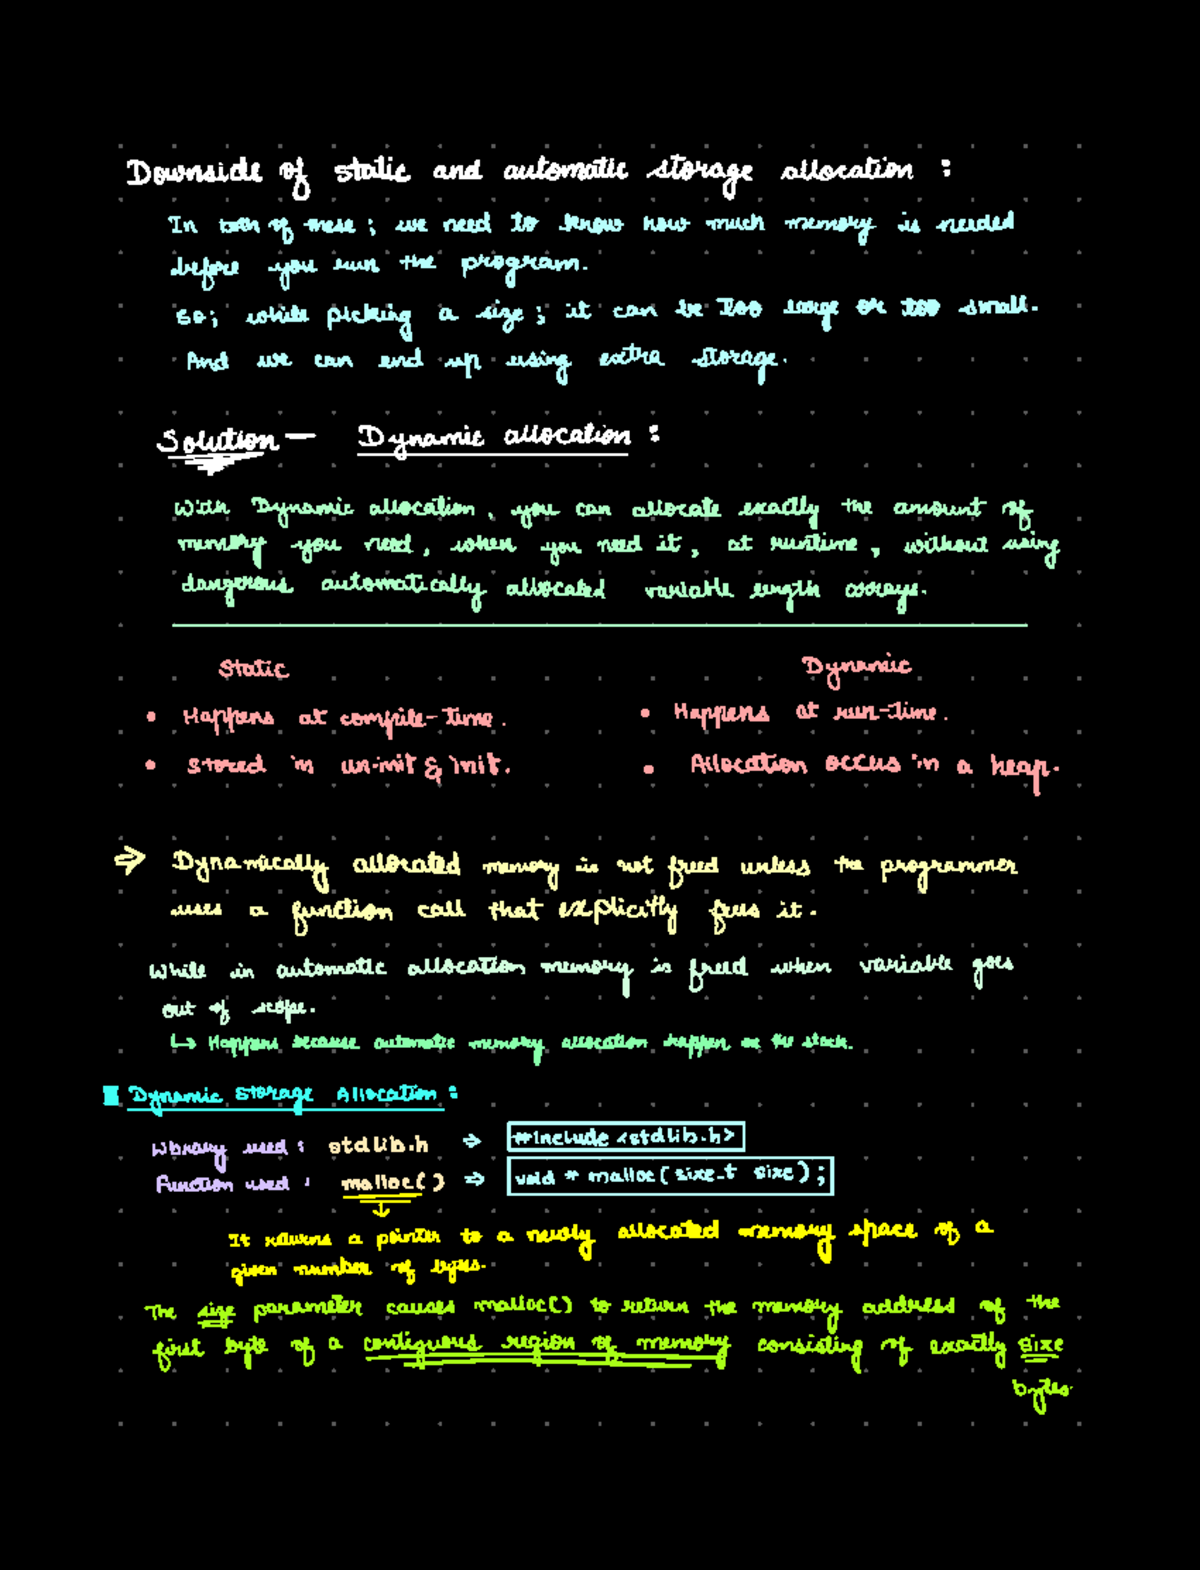 Downside of static and automatic storage allocation :
In both of these ; we need to know how much memory is needed
before you run the program.
So; while picking a size ; it can be too large or too small.
And we can end up using extra storage.
Solution — Dynamic allocation :
With Dynamic allocation, you can allocate exactly the amount of
memory you need, when you need it, at runtime, without using
dangerous automatically allocated variable length arrays.
Static
Dynamic
• Happens at compile-time.
• Happens at run-time.
• Stored in un-init & init.
• Allocation occus in a heap.
⇒ Dynamically allocated memory is not freed unless the programmer
uses a function call that explicitly frees it.
While in automatic allocation memory is freed when variable goes
out of scope.
↳ Happens because automatic memory allocation happen on the stack.
Dynamic Storage Allocation :
Library used : stdlib.h ⇒ #include <stdlib.h>
Function used : malloc() ⇒ void * malloc( size_t size) ;
↓
It returns a pointer to a newly allocated memory space of a
given number of bytes.
The size parameter causes malloc() to return the memory address of the
first byte of a contiguous region of memory consisting of exactly size
bytes.